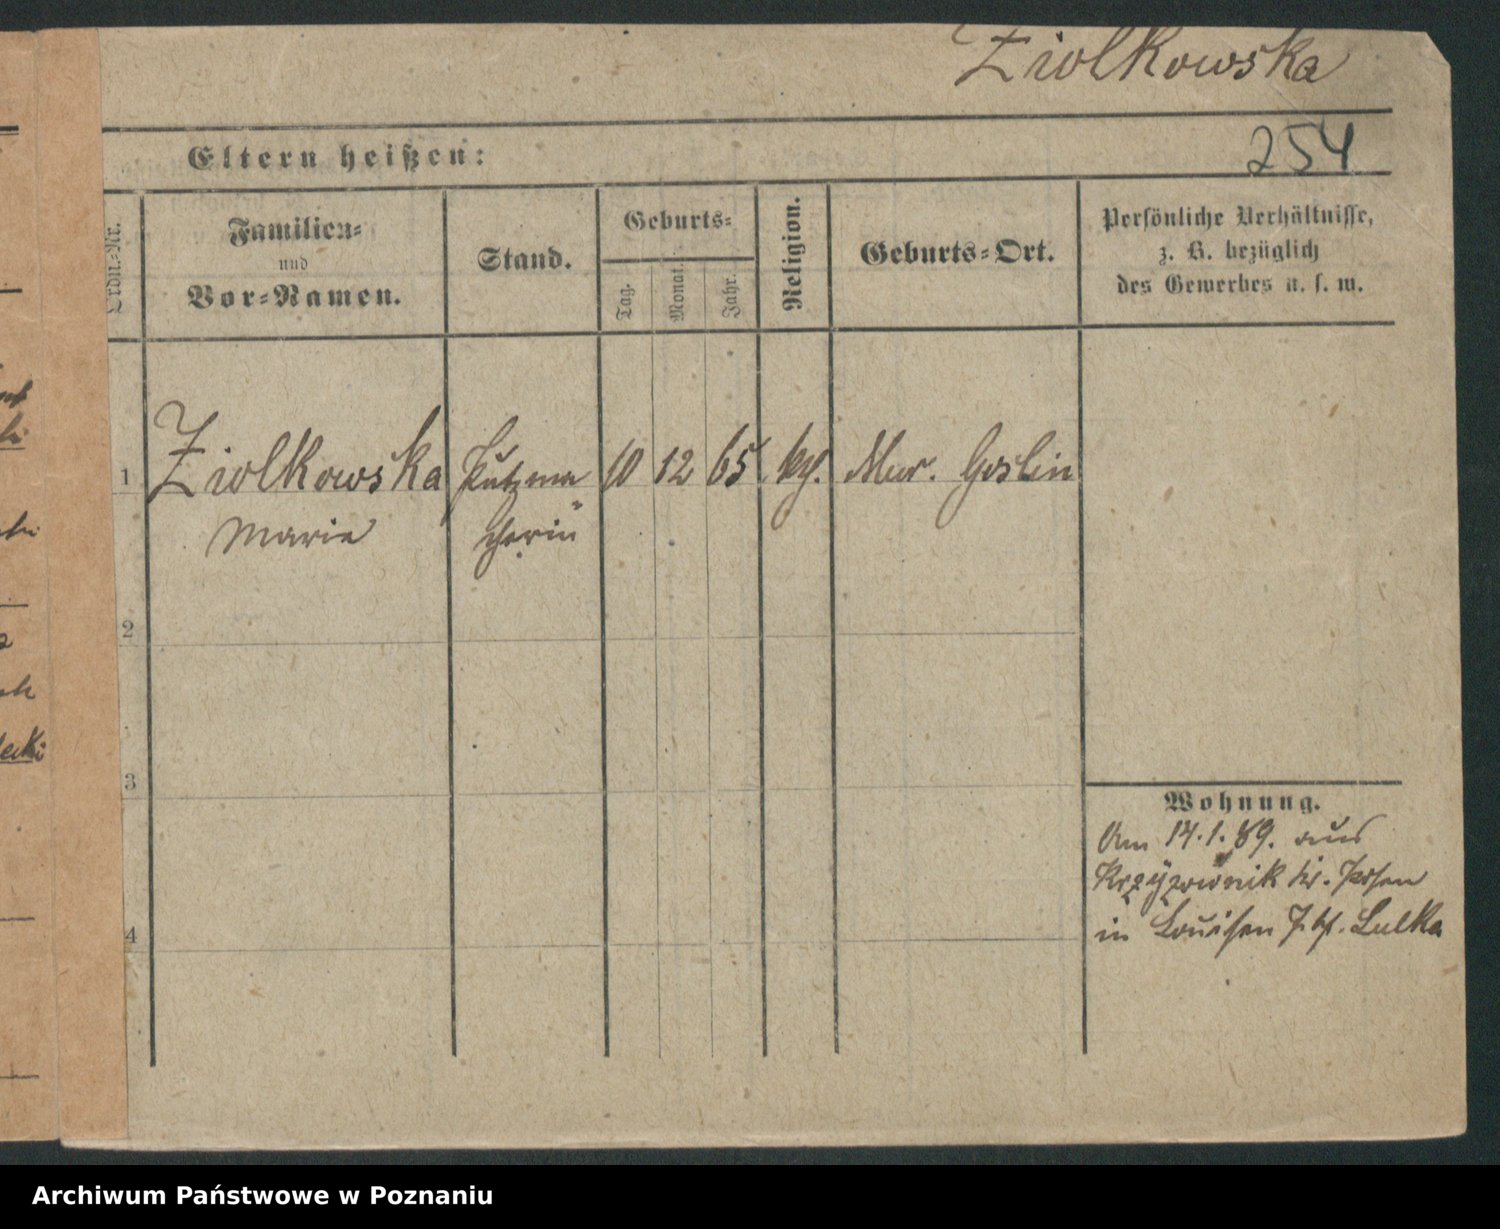 Ziolkowska
254
Eltern heißen:
Ordn.-Nr.
Familien-
und
Vor-Namen.
Stand.
Geburts-
Tag.
Monat.
Jahr.
Religion.
Geburts-Ort.
Persönliche Verhältnisse,
z. B. bezüglich
des Gewerbes u. s. w.
1 Ziolkowska Putzma 10 12 65 kth. Mur. Goslin
Marie cherin
2
3
Wohnung.
Am 14.1.89. aus
Krzyzownik Kr. Posen
in Louisen Lulka
4
Archiwum Państwowe w Poznaniu